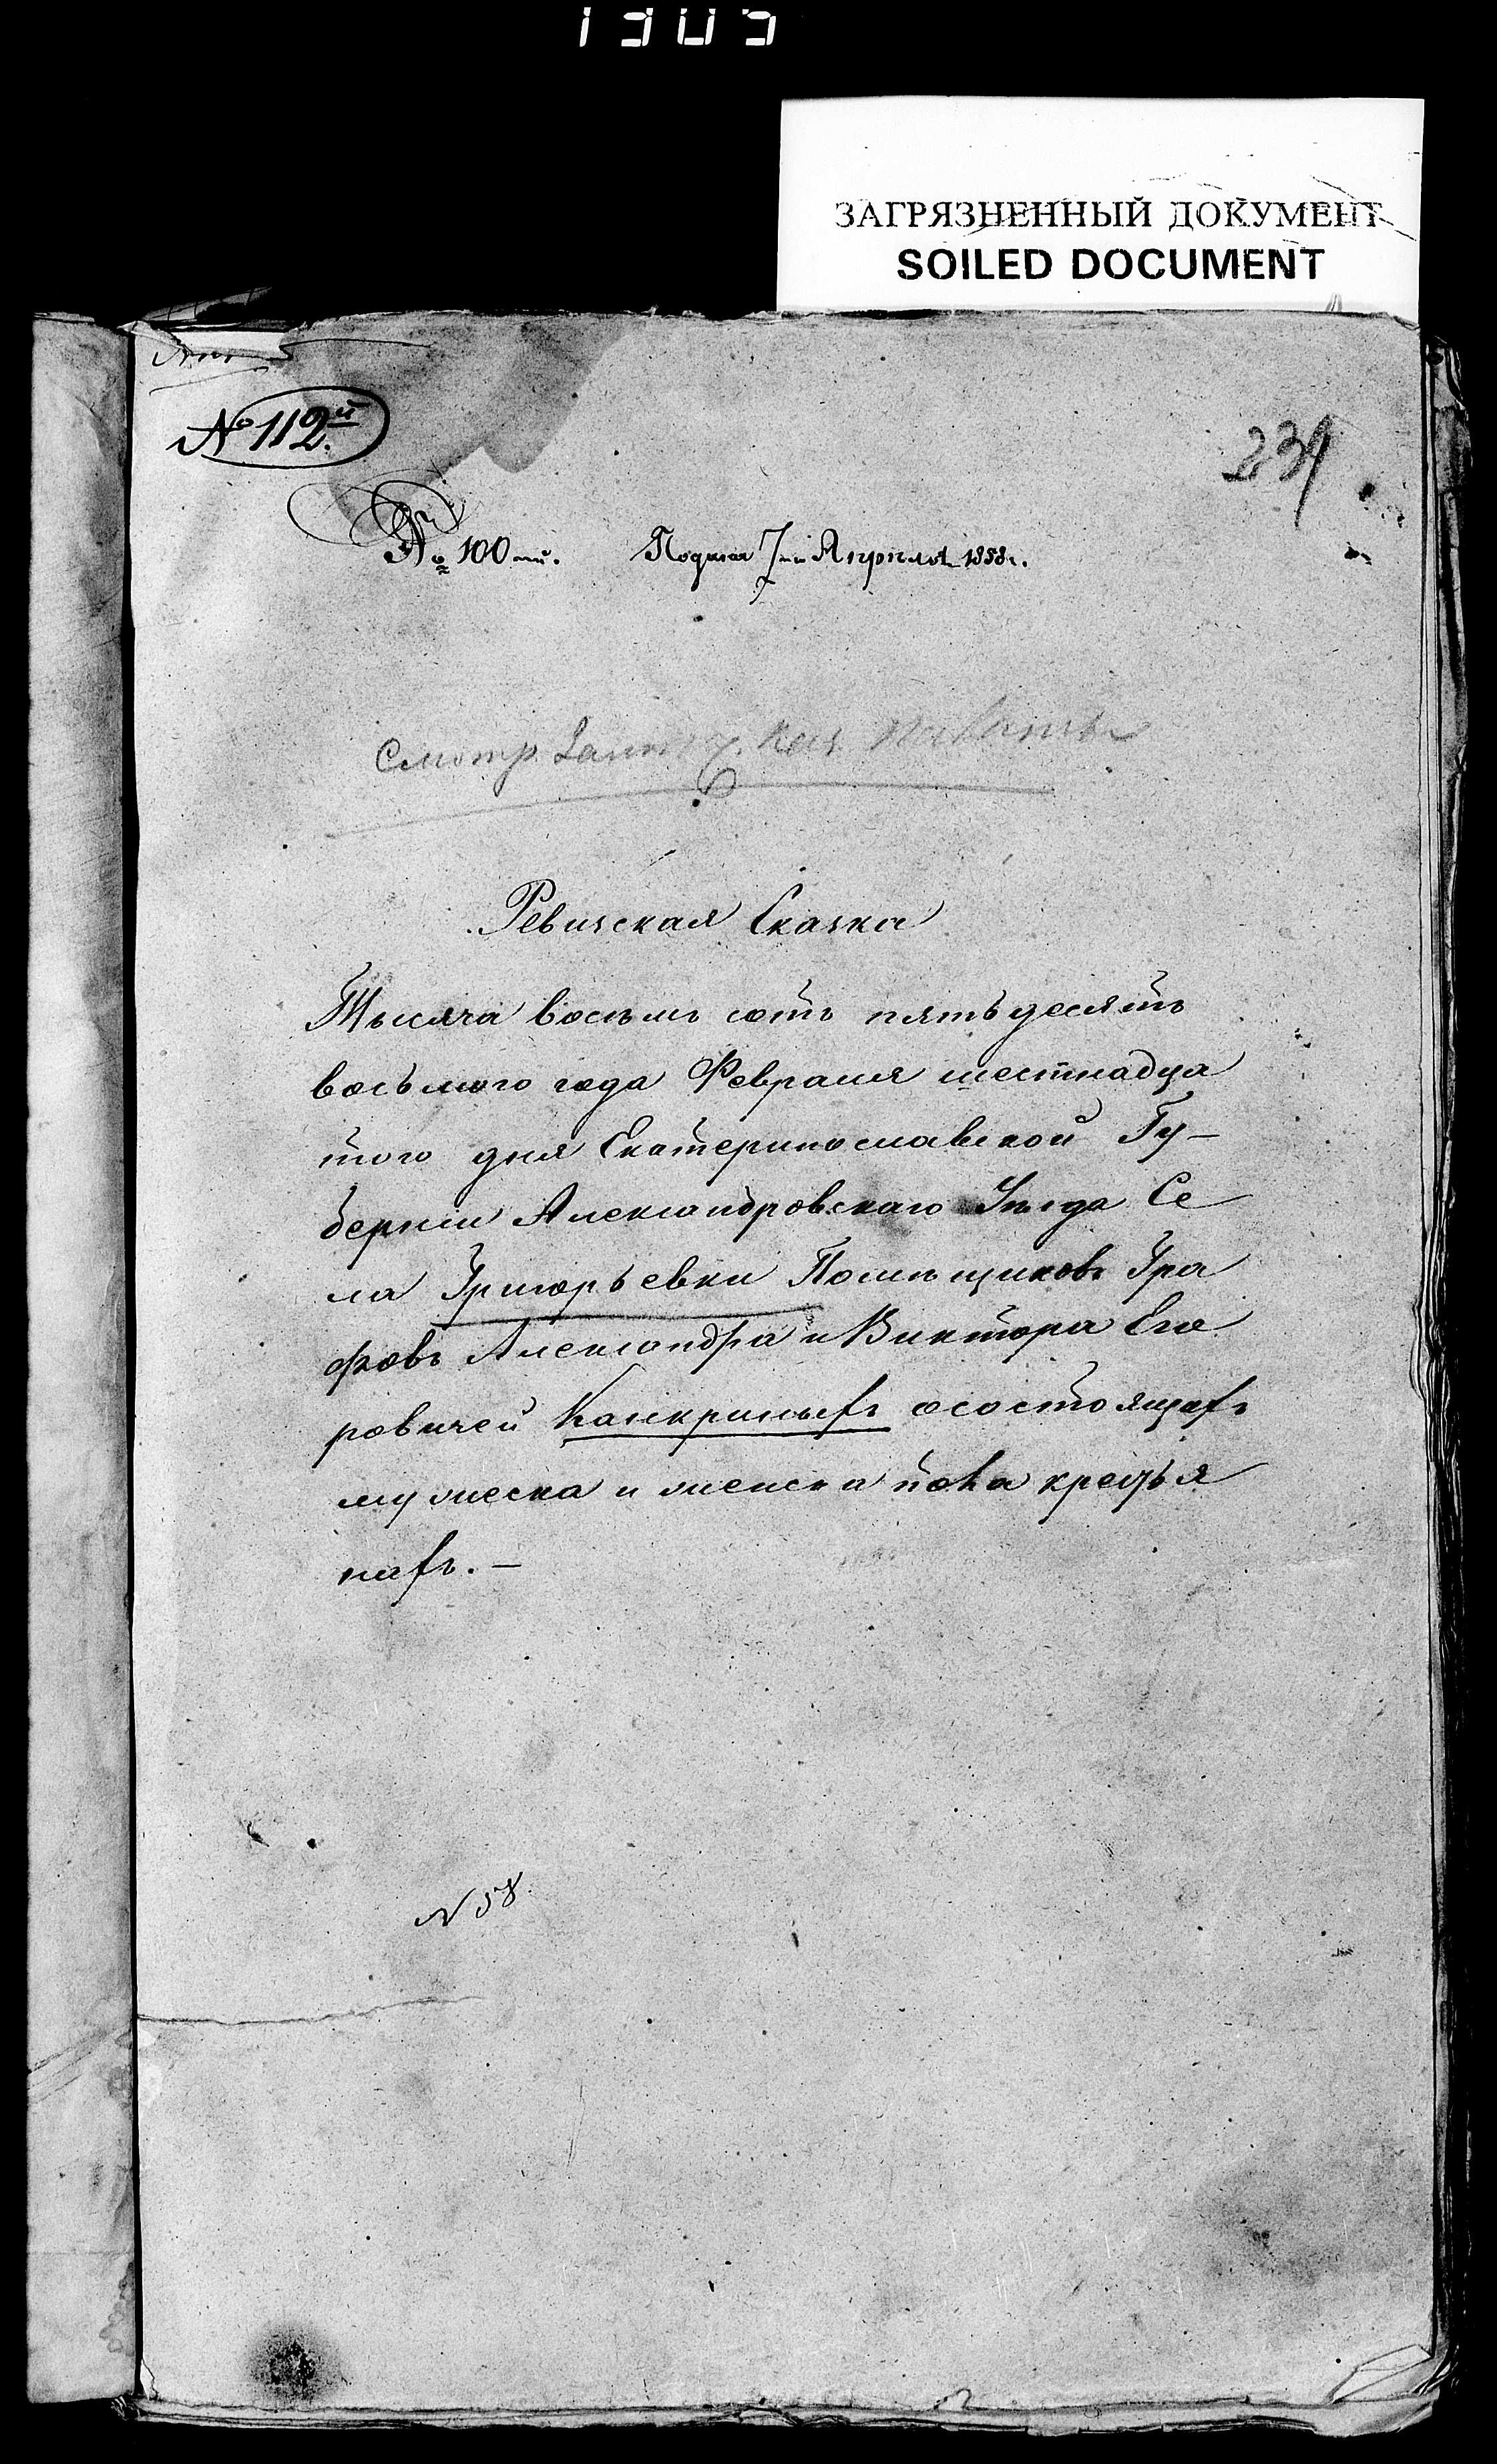 ЗАГРЯЗНЕННЫЙ ДОКУМЕНТ
SOILED DOCUMENT
№ 112й
№ 100й. Подана 7го Апреля 1858 г.
Смотр.
Ревизская Сказка
Тысяча восемь сотъ пятьдесятъ
восьмого года Февраля шестнадца
того дня Екатеринославской Гу-
берніи Александровскаго Уѣзда Се
ла Григорьевки Помѣщиковъ Гра
фовъ Александра и Виктора Его
ровичей Канкриныхъ о состоящихъ
мужеска и женска пола крестья
нахъ. —
N 58